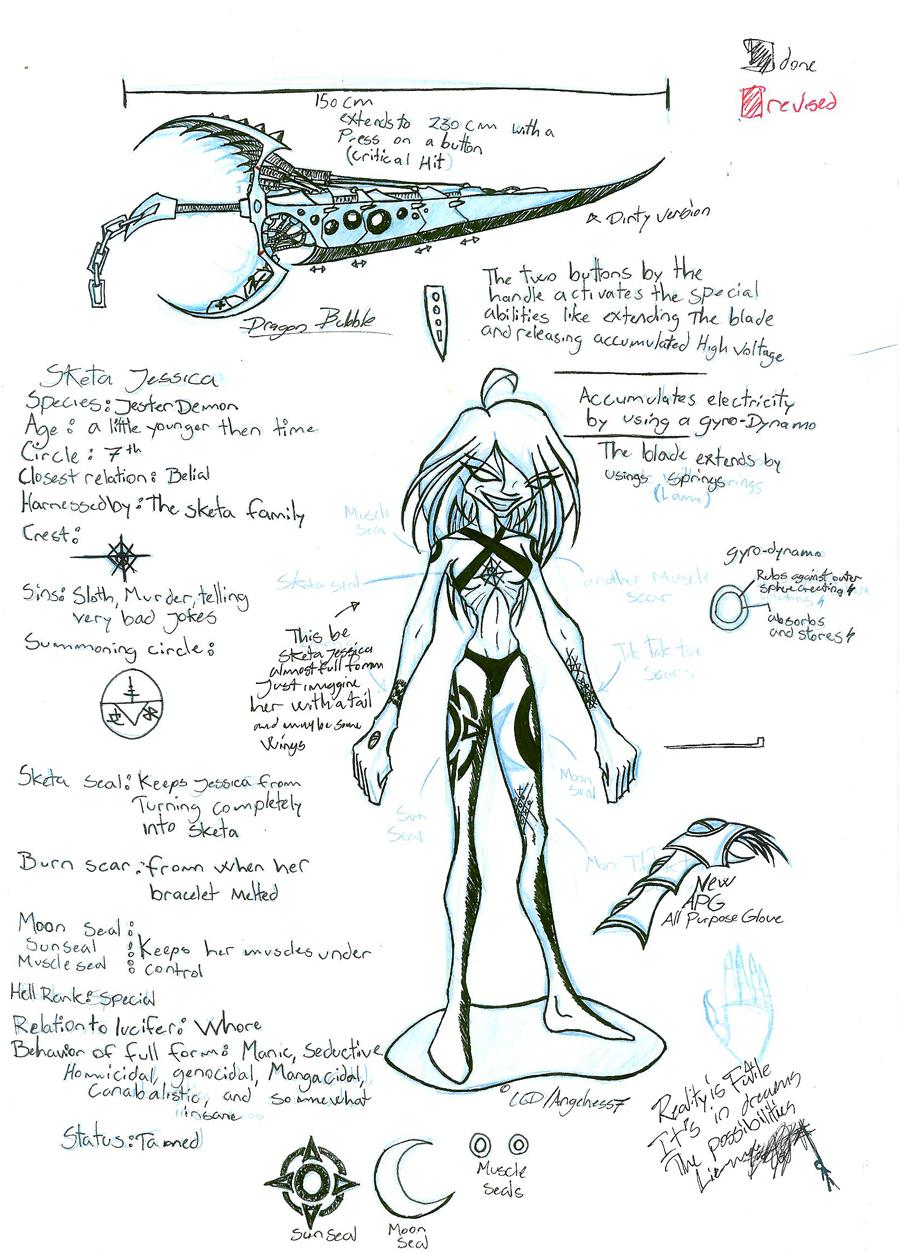 done
revised
150 cm
extends to 230 cm with a
Press on a button
(critical Hit)
Dirty version
Dragon Bubble
The two buttons by the
handle activates the special
abilities like extending The blade
and releasing accumulated High voltage
Accumulates electricity
by using a gyro-Dynamo
The blade extends by
usings springs
(Lame)
Sketa Jessica
Species: Jester Demon
Age: a little younger then time
Circle: 7th
Closest relation: Belial
Harnessed by: The sketa family
Crest:
Sins: Sloth, Murder, telling
very bad jokes
Summoning circle:
Muscle
Seal
Sketa seal
another Muscle
scar
Tik Tak toe
Scars
gyro-dynamo
Rubs against outer
sphere creating
absorbs
and stores
This be
Sketa Jessica
almost full form
Just imagine
her with a tail
and maybe some
Wings
Sketa seal: Keeps Jessica from
Turning completely
into sketa
Burn scar: from when her
bracelet Melted
Moon seal:
Sunseal : Keeps her muscles under
Muscle seal : control
Sun
Seal
Moon
Seal
More Tik Tak
New
APG
All Purpose Glove
Hell Rank: Special
Relation to lucifer: Whore
Behavior of full form: Manic, Seductive
Homicidal, genocidal, Mangacidal,
Canabalistic, and somewhat
insane
Status: Tamed
© LGD/Angelness7
Reality is Futile
It's in dreams
The possibilities
Sun seal
Moon
Seal
Muscle
Seals